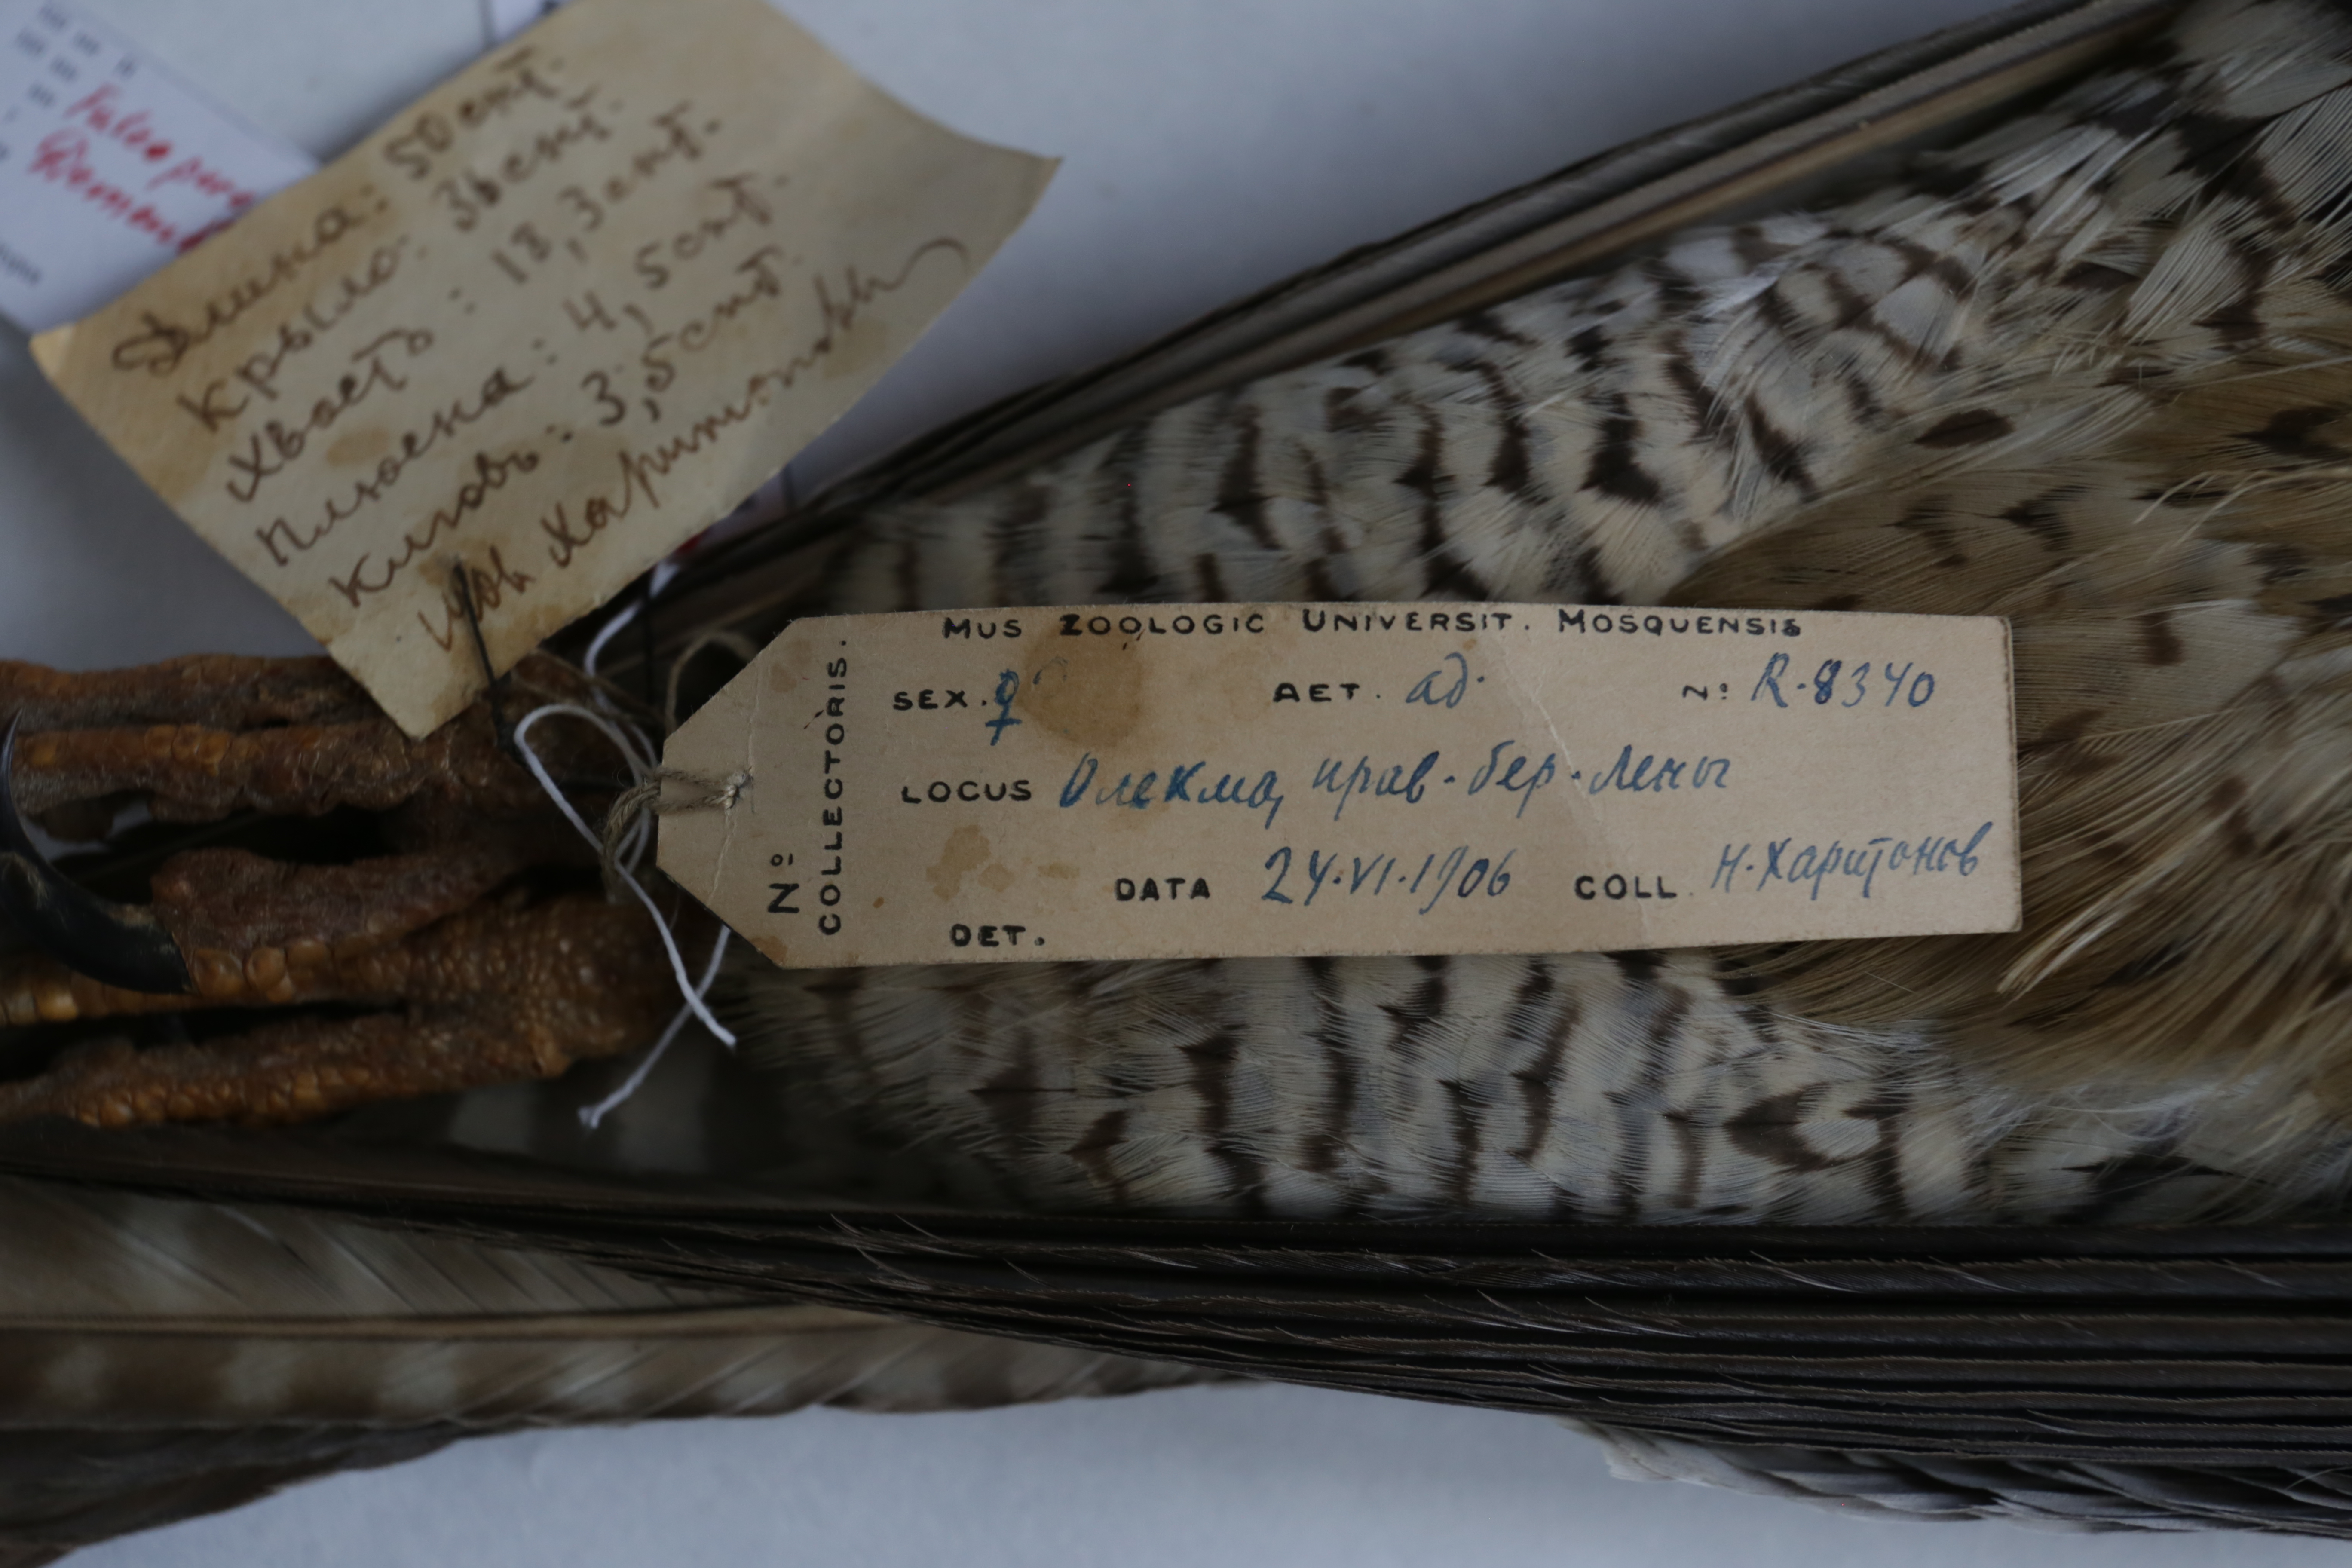 Falco
Длина: 50 снт.
Крыло: 36 снт.
Хвостъ: 18,3 снт.
Плюсна: 4,5 снт.
Клювъ: 3,5 снт.
Харитоновъ
MUS ZOOLOGIC UNIVERSIT. MOSQUENSIS
Nº COLLECTORIS.
SEX. ♀ AET. ad. Nº R-8340
LOCUS Олекма, прав. бер. Лены
DATA 24.VI.1906 COLL. Н. Харитонов
DET.